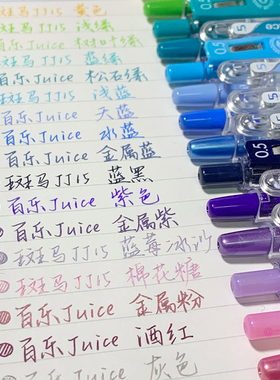 斑马JJ15 黄色
斑马JJ15 浅绿
百乐Juice
斑马JJ15 蓝绿
百乐Juice 松石绿
斑马JJ15 浅蓝
百乐Juice 天蓝
百乐Juice 水蓝
百乐Juice 金属蓝
斑马JJ15 蓝黑
百乐Juice 紫色
百乐Juice 金属紫
斑马JJ15 蓝莓冰沙
斑马JJ15 棉花糖
百乐Juice 金属粉
百乐Juice 酒红
百乐Juice 灰色
0.5
0.5
0.5